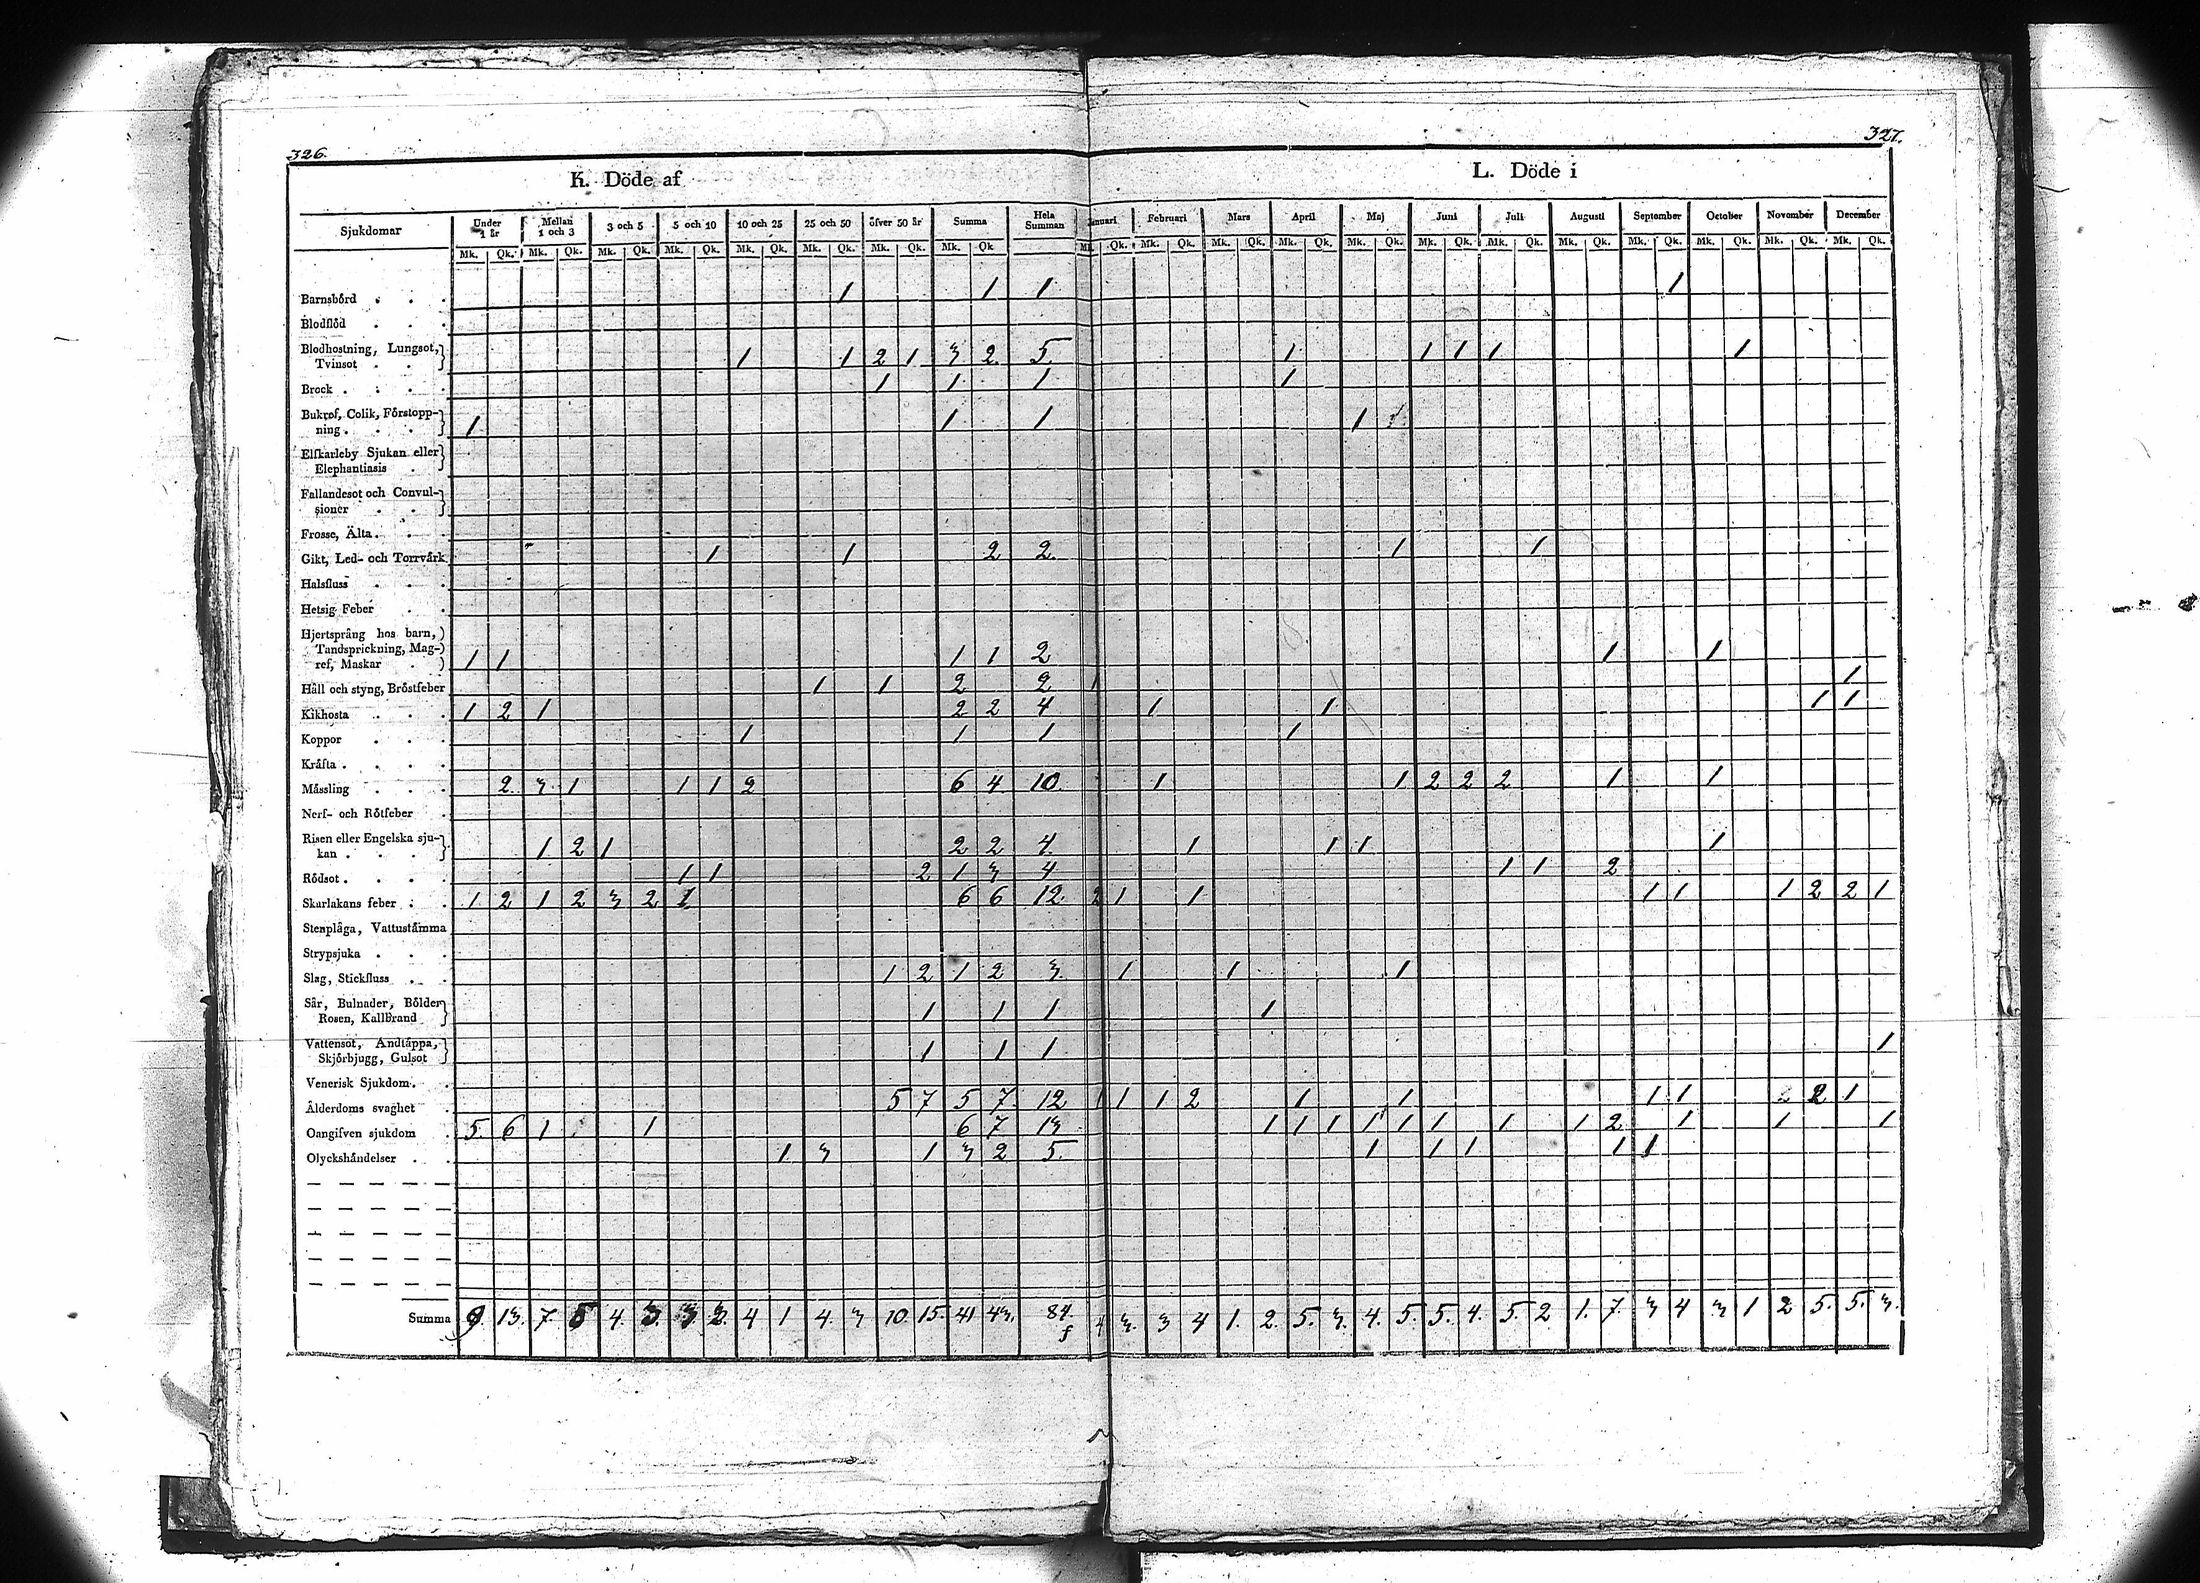 326. 327.
K. Döde af L. Döde i
Sjukdomar Under 1 år Mellan 1 och 3 3 och 5 5 och 10 10 och 25 25 och 50 öfver 50 år Summa Hela Summan Januari Februari Mars April Maj Juni Juli Augusti September October November December
Mk. Qk. Mk. Qk. Mk. Qk. Mk. Qk. Mk. Qk. Mk. Qk. Mk. Qk. Mk. Qk Mk. Qk. Mk. Qk. Mk. Qk. Mk. Qk. Mk. Qk. Mk. Qk. Mk. Qk. Mk. Qk. Mk. Qk. Mk. Qk. Mk. Qk. Mk. Qk.
Barnsbörd . . . 1 1 1 1
Blodflöd . . .
Blodhostning, Lungsot,
Tvinsot . . 1 1 2 1 3 2 5. 1 1 1 1 1
Brock . . . . 1 1 1 1
Bukref, Colik, Förstopp-
ning . . . 1 1 1 1
Elfkarleby Sjukan eller
Elephantiasis .
Fallandesot och Convul-
sioner . .
Frosse, Älta . . .
Gikt, Led- och Torrvärk 1 1 2 2. 1 1
Halsfluss . . .
Hetsig Feber . .
Hjertsprång hos barn,
Tandsprickning, Mag-
ref, Maskar . 1 1 1 1 2 1 1
Håll och styng, Bröstfeber 1 1 2 2 1 1
Kikhosta . . . 1 2 1 2 2 4 1 1 1 1
Koppor . . . 1 1 1 1
Kräfta . . . .
Mässling . . . 2. 3 1 1 1 2 6 4 10. 1 1 2 2 2 1 1
Nerf- och Rötfeber .
Risen eller Engelska sju-
kan . . . 1 2 1 2 2 4. 1 1 1 1
Rödsot . . . . 1 1 2 1 3 4 1 1 2
Skarlakans feber . . 1 2 1 2 3 2 1 6 6 12. 2 1 1 1 1 1 2 2 1
Stenplåga, Vattustämma
Strypsjuka . . .
Slag, Stickfluss . . 1 2 1 2 3. 1 1 1
Sår, Bulnader, Bölder
Rosen, Kallbrand 1 1 1 1
Vattensot, Andtäppa,
Skjörbjugg, Gulsot 1 1 1 1
Venerisk Sjukdom . .
Ålderdoms svaghet . 5 7 5 7. 12 1 1 1 2 1 1 1 1 2 2 1
Oangifven sjukdom . 5. 6 1 1 6 7 13 1 1 1 1 1 1 1 1 2 1 1 1
Olyckshändelser . . 1. 3 1 3 2 5. 1 1 1 1 1
Summa 9. 13. 7. 5 4. 3. 3 2. 4 1 4. 3 10. 15. 41 43. 84. 4 3. 3 4 1. 2. 5. 3. 4. 5. 5. 4. 5. 2 1. 7. 3 4 3 1 2 5. 5. 3.